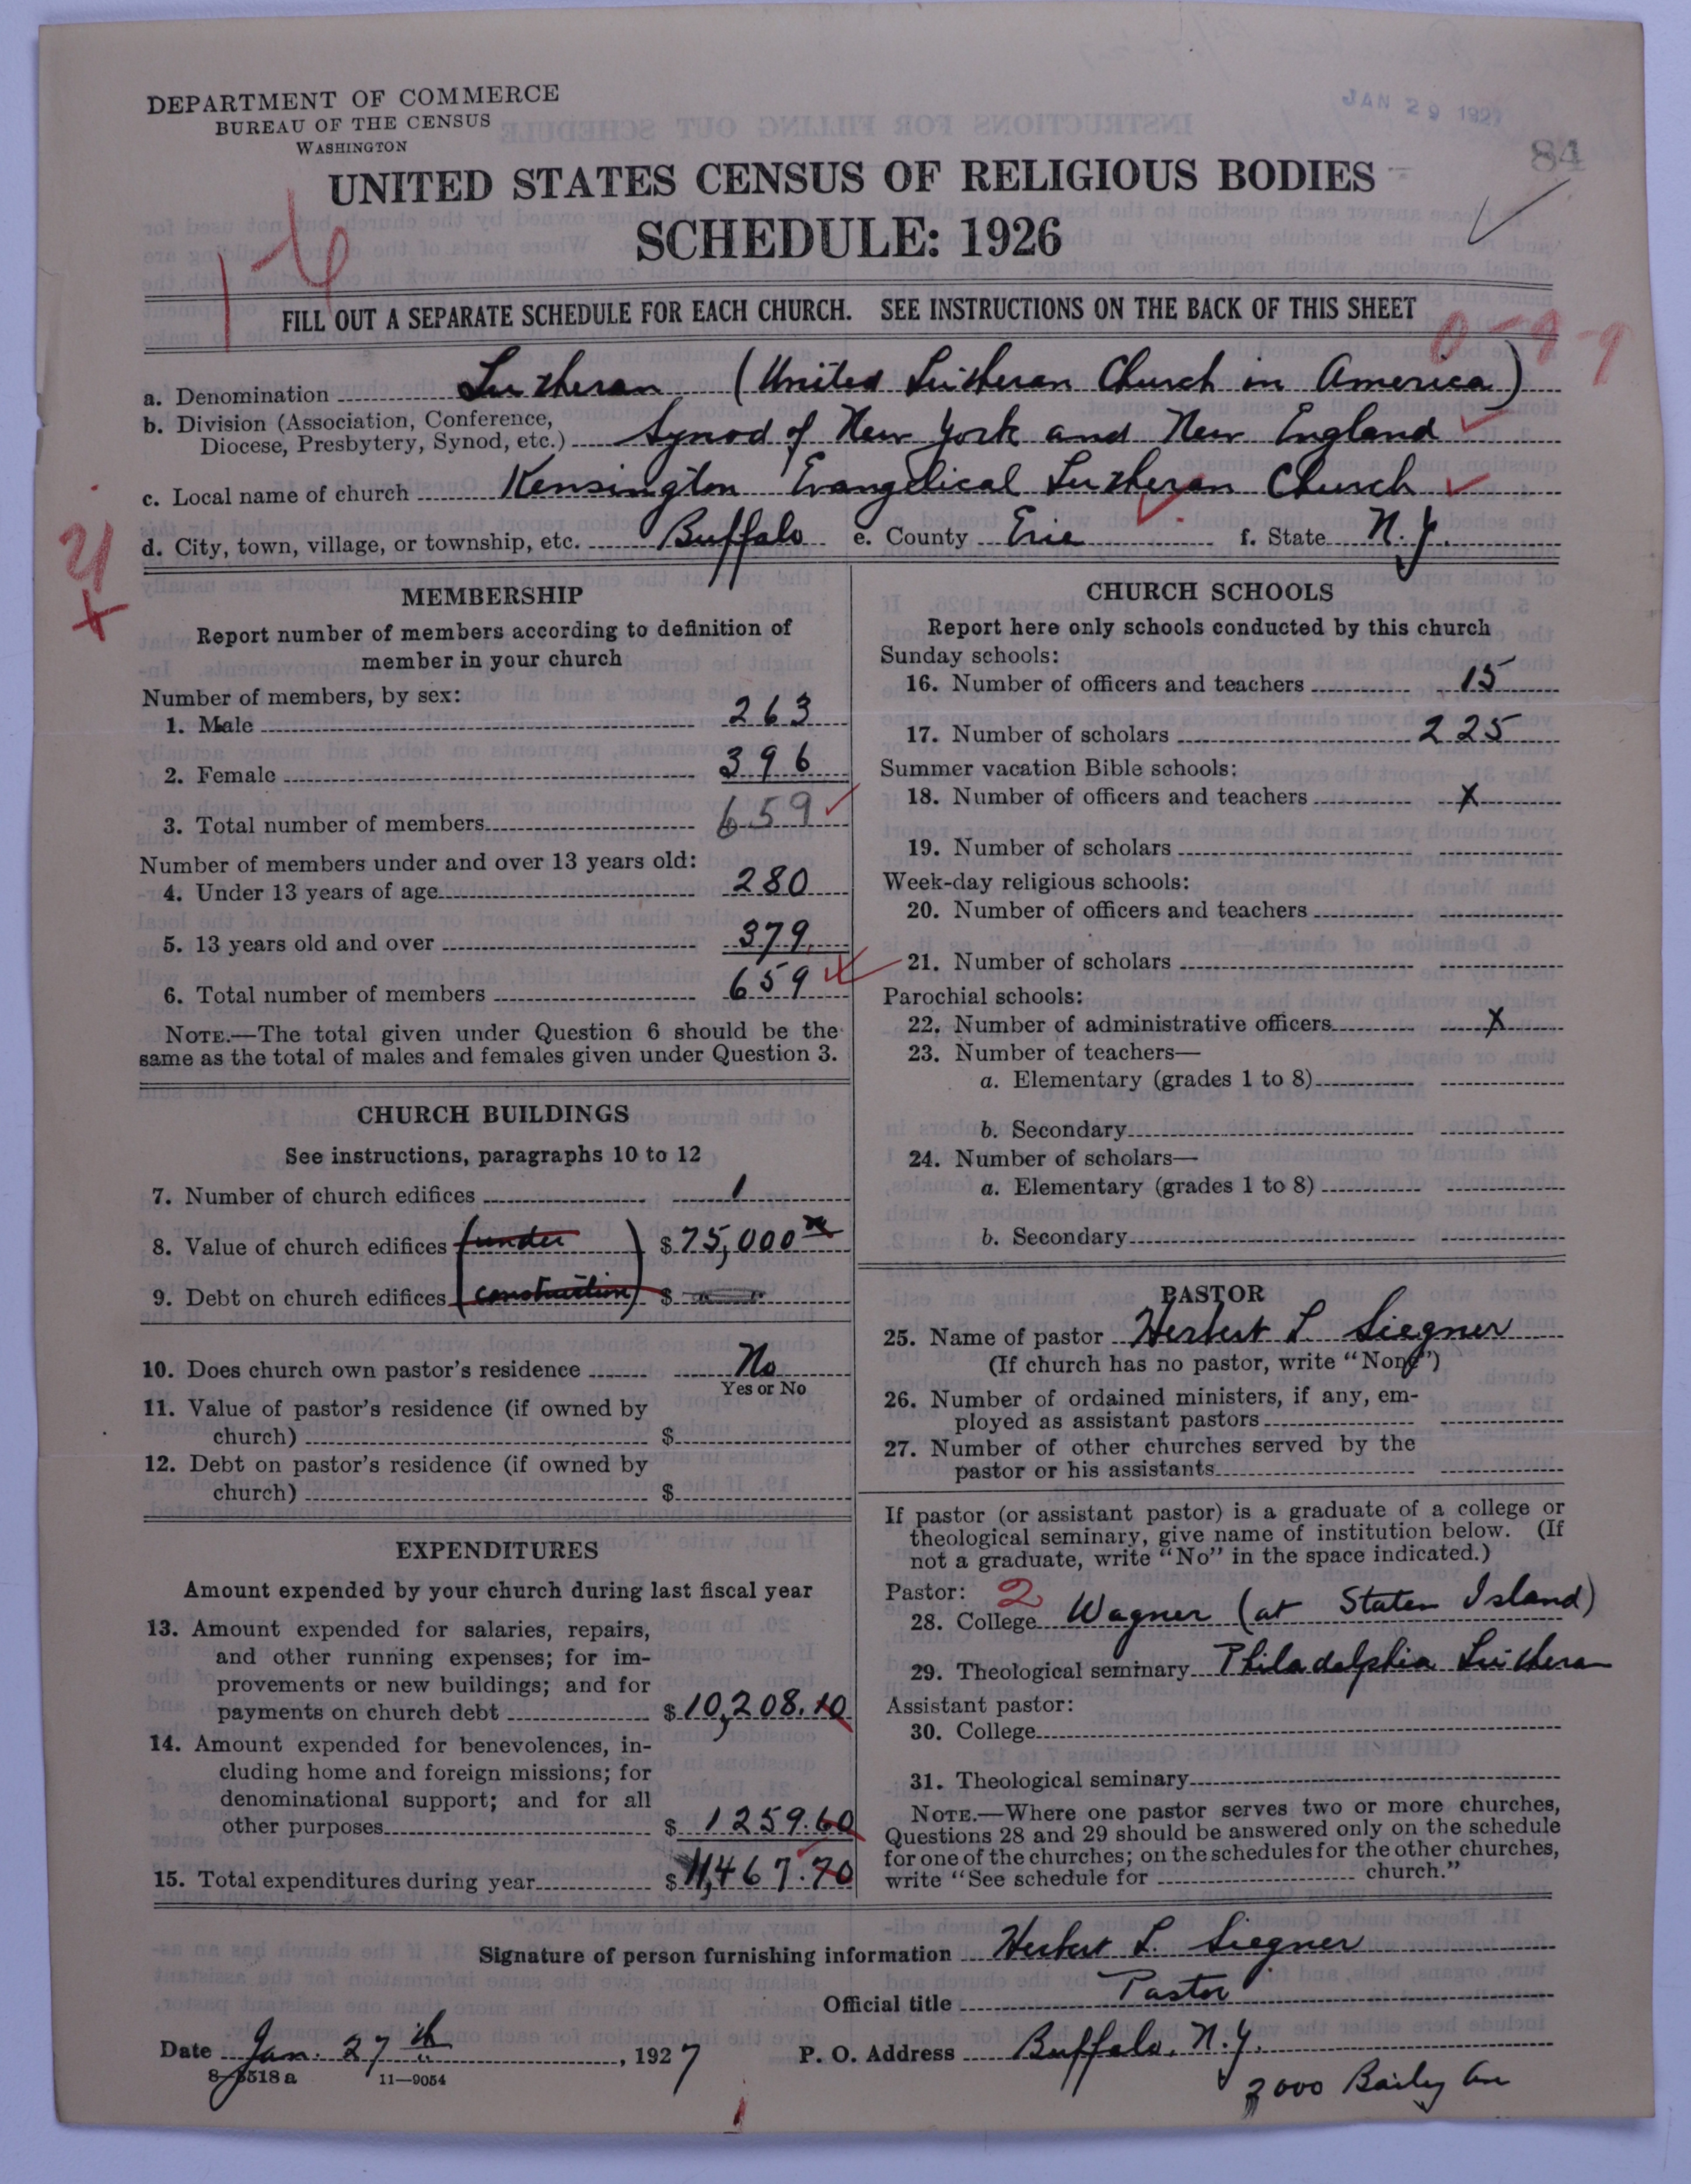 DEPARTMENT OF COMMERCE
BUREAU OF THE CENSUS
WASHINGTON
JAN 29 1927
84
UNITED STATES CENSUS OF RELIGIOUS BODIES
SCHEDULE: 1926
1-6
FILL OUT A SEPARATE SCHEDULE FOR EACH CHURCH. SEE INSTRUCTIONS ON THE BACK OF THIS SHEET
0-9-9
a. Denomination Lutheran (United Lutheran Church in America)
b. Division (Association, Conference,
Diocese, Presbytery, Synod, etc.) Synod of New York and New England
c. Local name of church Kensington Evangelical Lutheran Church
d. City, town, village, or township, etc. Buffalo e. County Erie f. State N.Y.
MEMBERSHIP
Report number of members according to definition of
member in your church
Number of members, by sex:
1. Male 263
2. Female 396
3. Total number of members 659
Number of members under and over 13 years old:
4. Under 13 years of age 280
5. 13 years old and over 379
6. Total number of members 659
NOTE.—The total given under Question 6 should be the
same as the total of males and females given under Question 3.
CHURCH BUILDINGS
See instructions, paragraphs 10 to 12
7. Number of church edifices 1
8. Value of church edifices (under $75,000
9. Debt on church edifices construction) $
10. Does church own pastor's residence No
Yes or No
11. Value of pastor's residence (if owned by
church) $
12. Debt on pastor's residence (if owned by
church) $
EXPENDITURES
Amount expended by your church during last fiscal year
13. Amount expended for salaries, repairs,
and other running expenses; for im-
provements or new buildings; and for
payments on church debt $10,208.10
14. Amount expended for benevolences, in-
cluding home and foreign missions; for
denominational support; and for all
other purposes $1259.60
15. Total expenditures during year $11,467.70
CHURCH SCHOOLS
Report here only schools conducted by this church
Sunday schools:
16. Number of officers and teachers 15
17. Number of scholars 225
Summer vacation Bible schools:
18. Number of officers and teachers X
19. Number of scholars
Week-day religious schools:
20. Number of officers and teachers
21. Number of scholars
Parochial schools:
22. Number of administrative officers X
23. Number of teachers—
a. Elementary (grades 1 to 8)
b. Secondary
24. Number of scholars—
a. Elementary (grades 1 to 8)
b. Secondary
PASTOR
25. Name of pastor Herbert L Siegner
(If church has no pastor, write "None")
26. Number of ordained ministers, if any, em-
ployed as assistant pastors
27. Number of other churches served by the
pastor or his assistants
If pastor (or assistant pastor) is a graduate of a college or
theological seminary, give name of institution below. (If
not a graduate, write "No" in the space indicated.)
Pastor: 2
28. College Wagner (at Staten Island)
29. Theological seminary Philadelphia Lutheran
Assistant pastor:
30. College
31. Theological seminary
NOTE.—Where one pastor serves two or more churches,
Questions 28 and 29 should be answered only on the schedule
for one of the churches; on the schedules for the other churches,
write "See schedule for church."
Signature of person furnishing information Herbert L. Siegner
Official title Pastor
Date Jan. 27th, 1927 P. O. Address Buffalo, N.Y.
8-5518a 11—9054
2000 Bailey Ave